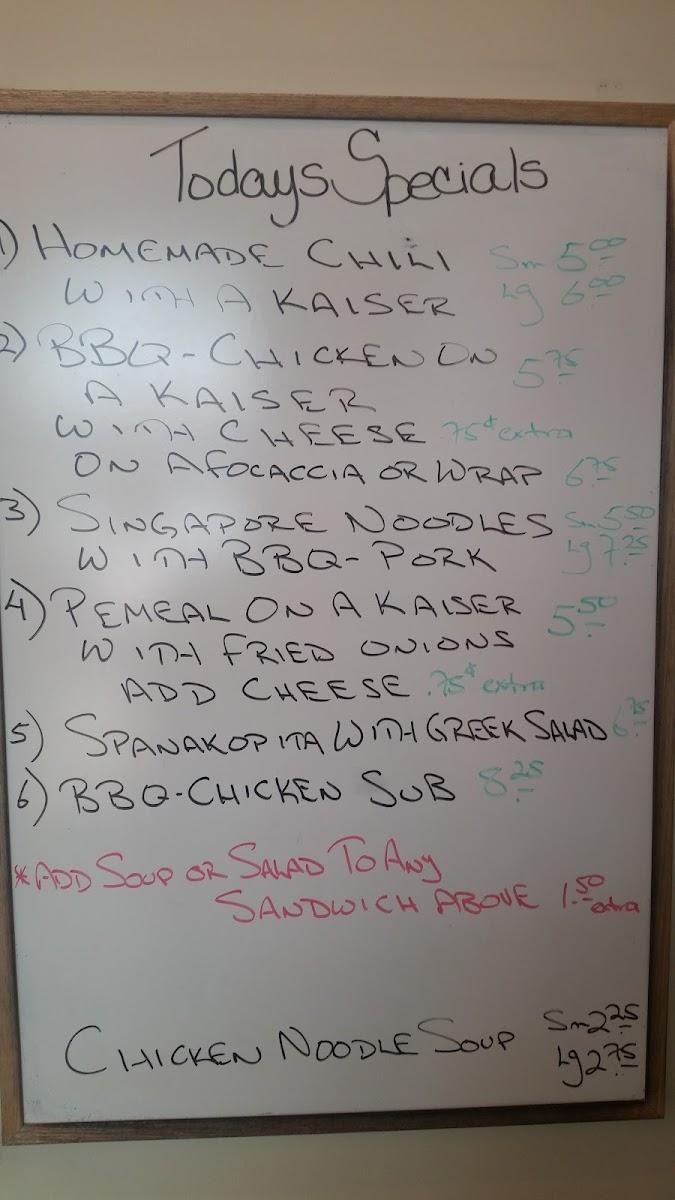 Todays Specials
1) HOMEMADE CHILI Sm 5.00
WITH A KAISER Lg 6.00
2) BBQ-CHICKEN ON 5.75
A KAISER
WITH CHEESE 75¢ extra
ON A FOCACCIA OR WRAP 6.75
3) SINGAPORE NOODLES Sm 5.50
WITH BBQ-PORK Lg 7.25
4) PEMEAL ON A KAISER 5.50
WITH FRIED ONIONS
ADD CHEESE .75¢ extra
5) SPANAKOPITA WITH GREEK SALAD 6.75
6) BBQ-CHICKEN SUB 8.25
*ADD SOUP OR SALAD TO ANY
SANDWICH ABOVE 1.50 extra
CHICKEN NOODLE SOUP Sm 2.25
Lg 2.75